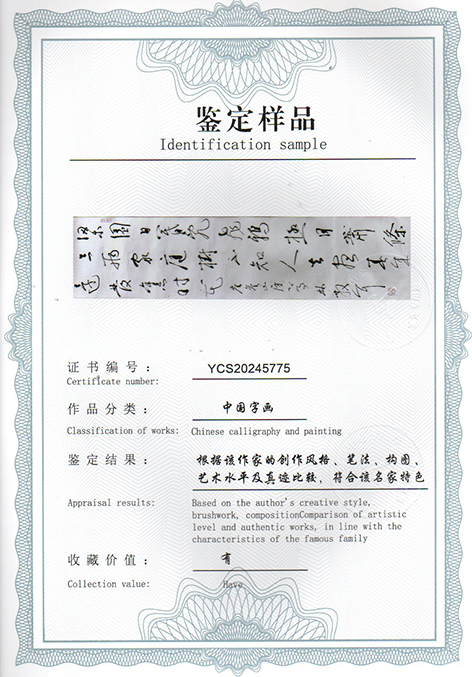 鉴定样品
Identification sample
梁園日暮乱飛鴉極目蕭條
三兩家庭樹不知人去盡春來
還發舊時花
证书编号： YCS20245775
Certificate number:
作品分类： 中国字画
Classification of works: Chinese calligraphy and painting
鉴定结果： 根据该作家的创作风格、笔法、构图、
艺术水平及真迹比较，符合该名家特色
Appraisal results: Based on the author's creative style,
brushwork, compositionComparison of artistic
level and authentic works, in line with the
characteristics of the famous family
收藏价值： 有
Collection value: Have